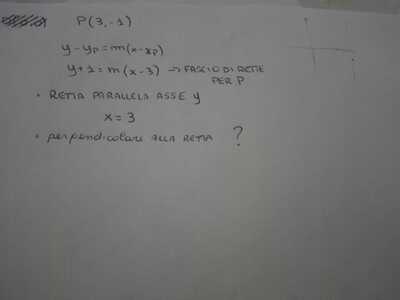 P(3,-1)
y-yp=m(x-xp)
y+1=m(x-3) → FASCIO DI RETTE
PER P
• RETTA PARALLELA ASSE y
x=3
• perpendicolare ALLA RETTA ?